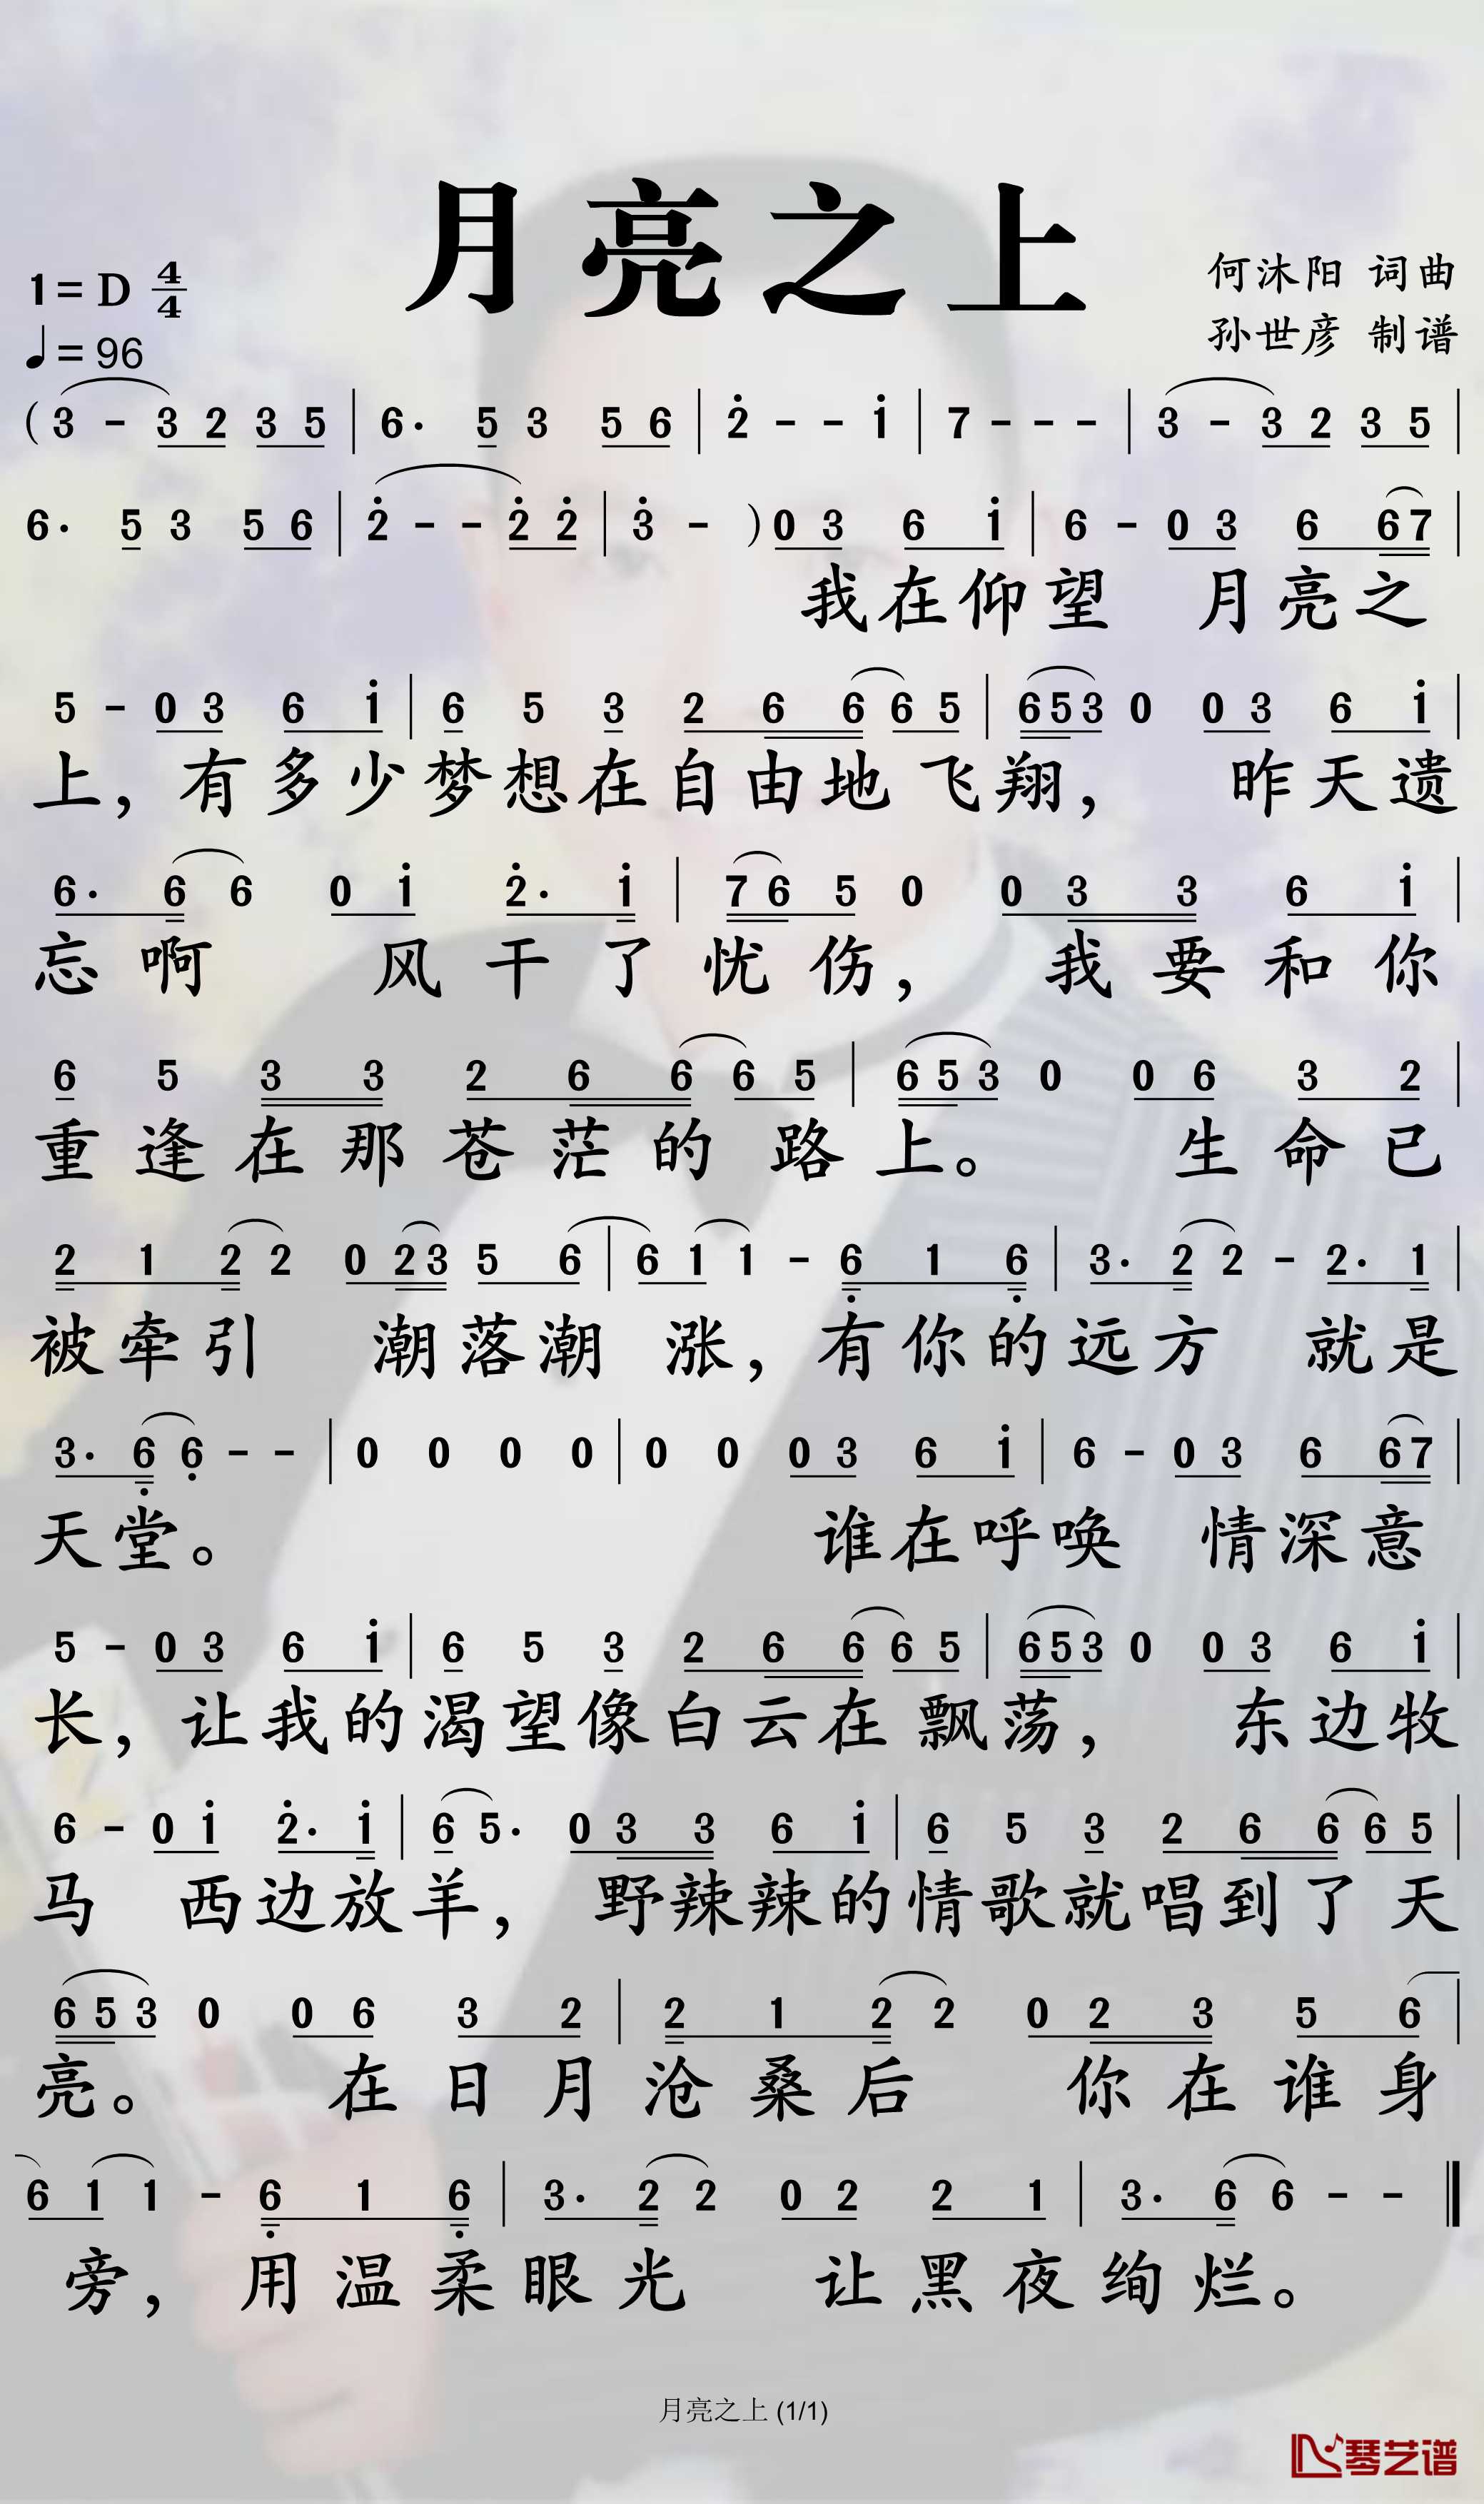 月亮之上
1=D 4/4
何沐阳 词曲
♩=96
孙世彦 制谱
(3 - 3 2 3 5 | 6· 5 3 5 6 | 2̇ - - i̇ | 7 - - - | 3 - 3 2 3 5 |
6· 5 3 5 6 | 2̇ - - 2̇ 2̇ | 3̇ - ) 0 3 6 i̇ | 6 - 0 3 6 6 7 |
我在仰望 月亮之
5 - 0 3 6 i̇ | 6 5 3 2 6 6 6 5 | 6 5 3 0 0 3 6 i̇ |
上，有多少梦想在自由地飞翔， 昨天遗
6· 6 6 0 i̇ 2̇· i̇ | 7 6 5 0 0 3 3 6 i̇ |
忘啊 风干了忧伤， 我要和你
6 5 3 3 2 6 6 6 5 | 6 5 3 0 0 6 3 2 |
重逢在那苍茫的路上。 生命已
2 1 2 2 0 2 3 5 6 | 6 1 1 - 6̣ 1 6̣ | 3· 2 2 - 2· 1 |
被牵引 潮落潮涨，有你的远方 就是
3· 6̣ 6̣ - - | 0 0 0 0 | 0 0 0 3 6 i̇ | 6 - 0 3 6 6 7 |
天堂。 谁在呼唤 情深意
5 - 0 3 6 i̇ | 6 5 3 2 6 6 6 5 | 6 5 3 0 0 3 6 i̇ |
长，让我的渴望像白云在飘荡， 东边牧
6 - 0 i̇ 2̇· i̇ | 6 5· 0 3 3 6 i̇ | 6 5 3 2 6 6 6 5 |
马 西边放羊，野辣辣的情歌就唱到了天
6 5 3 0 0 6 3 2 | 2 1 2 2 0 2 3 5 6 |
亮。 在日月沧桑后 你在谁身
6 1 1 - 6̣ 1 6̣ | 3· 2 2 0 2 2 1 | 3· 6 6 - - ‖
旁，用温柔眼光 让黑夜绚烂。
月亮之上 (1/1)
琴艺谱